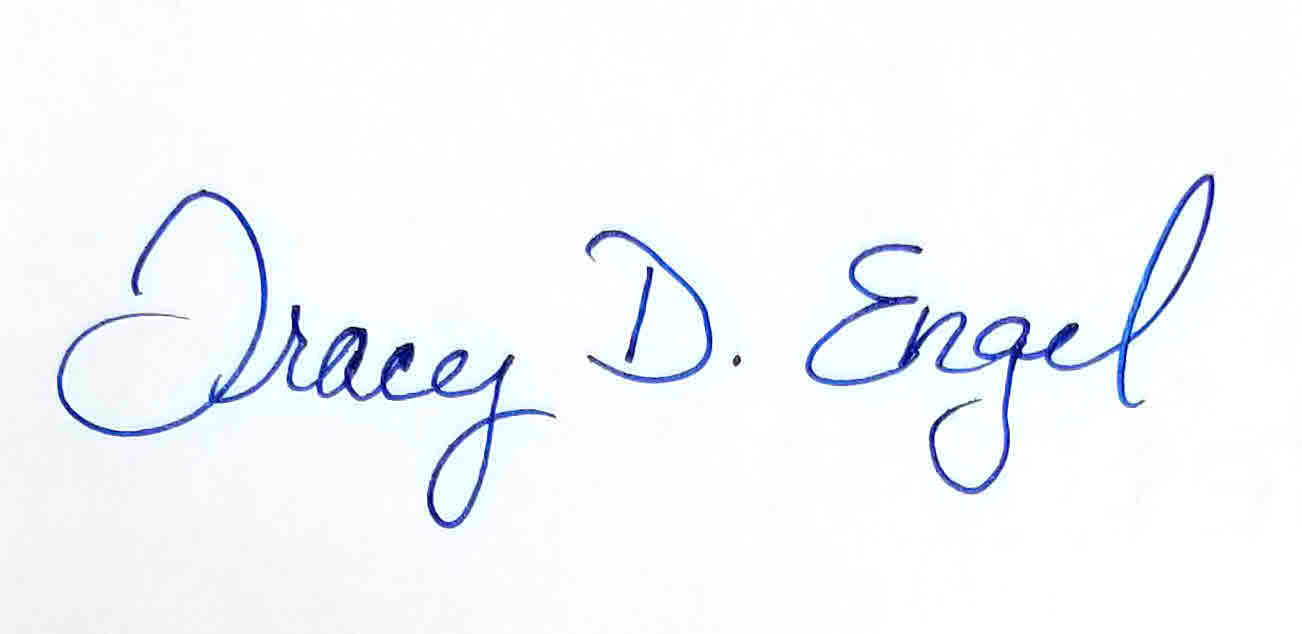 Tracey D. Engel